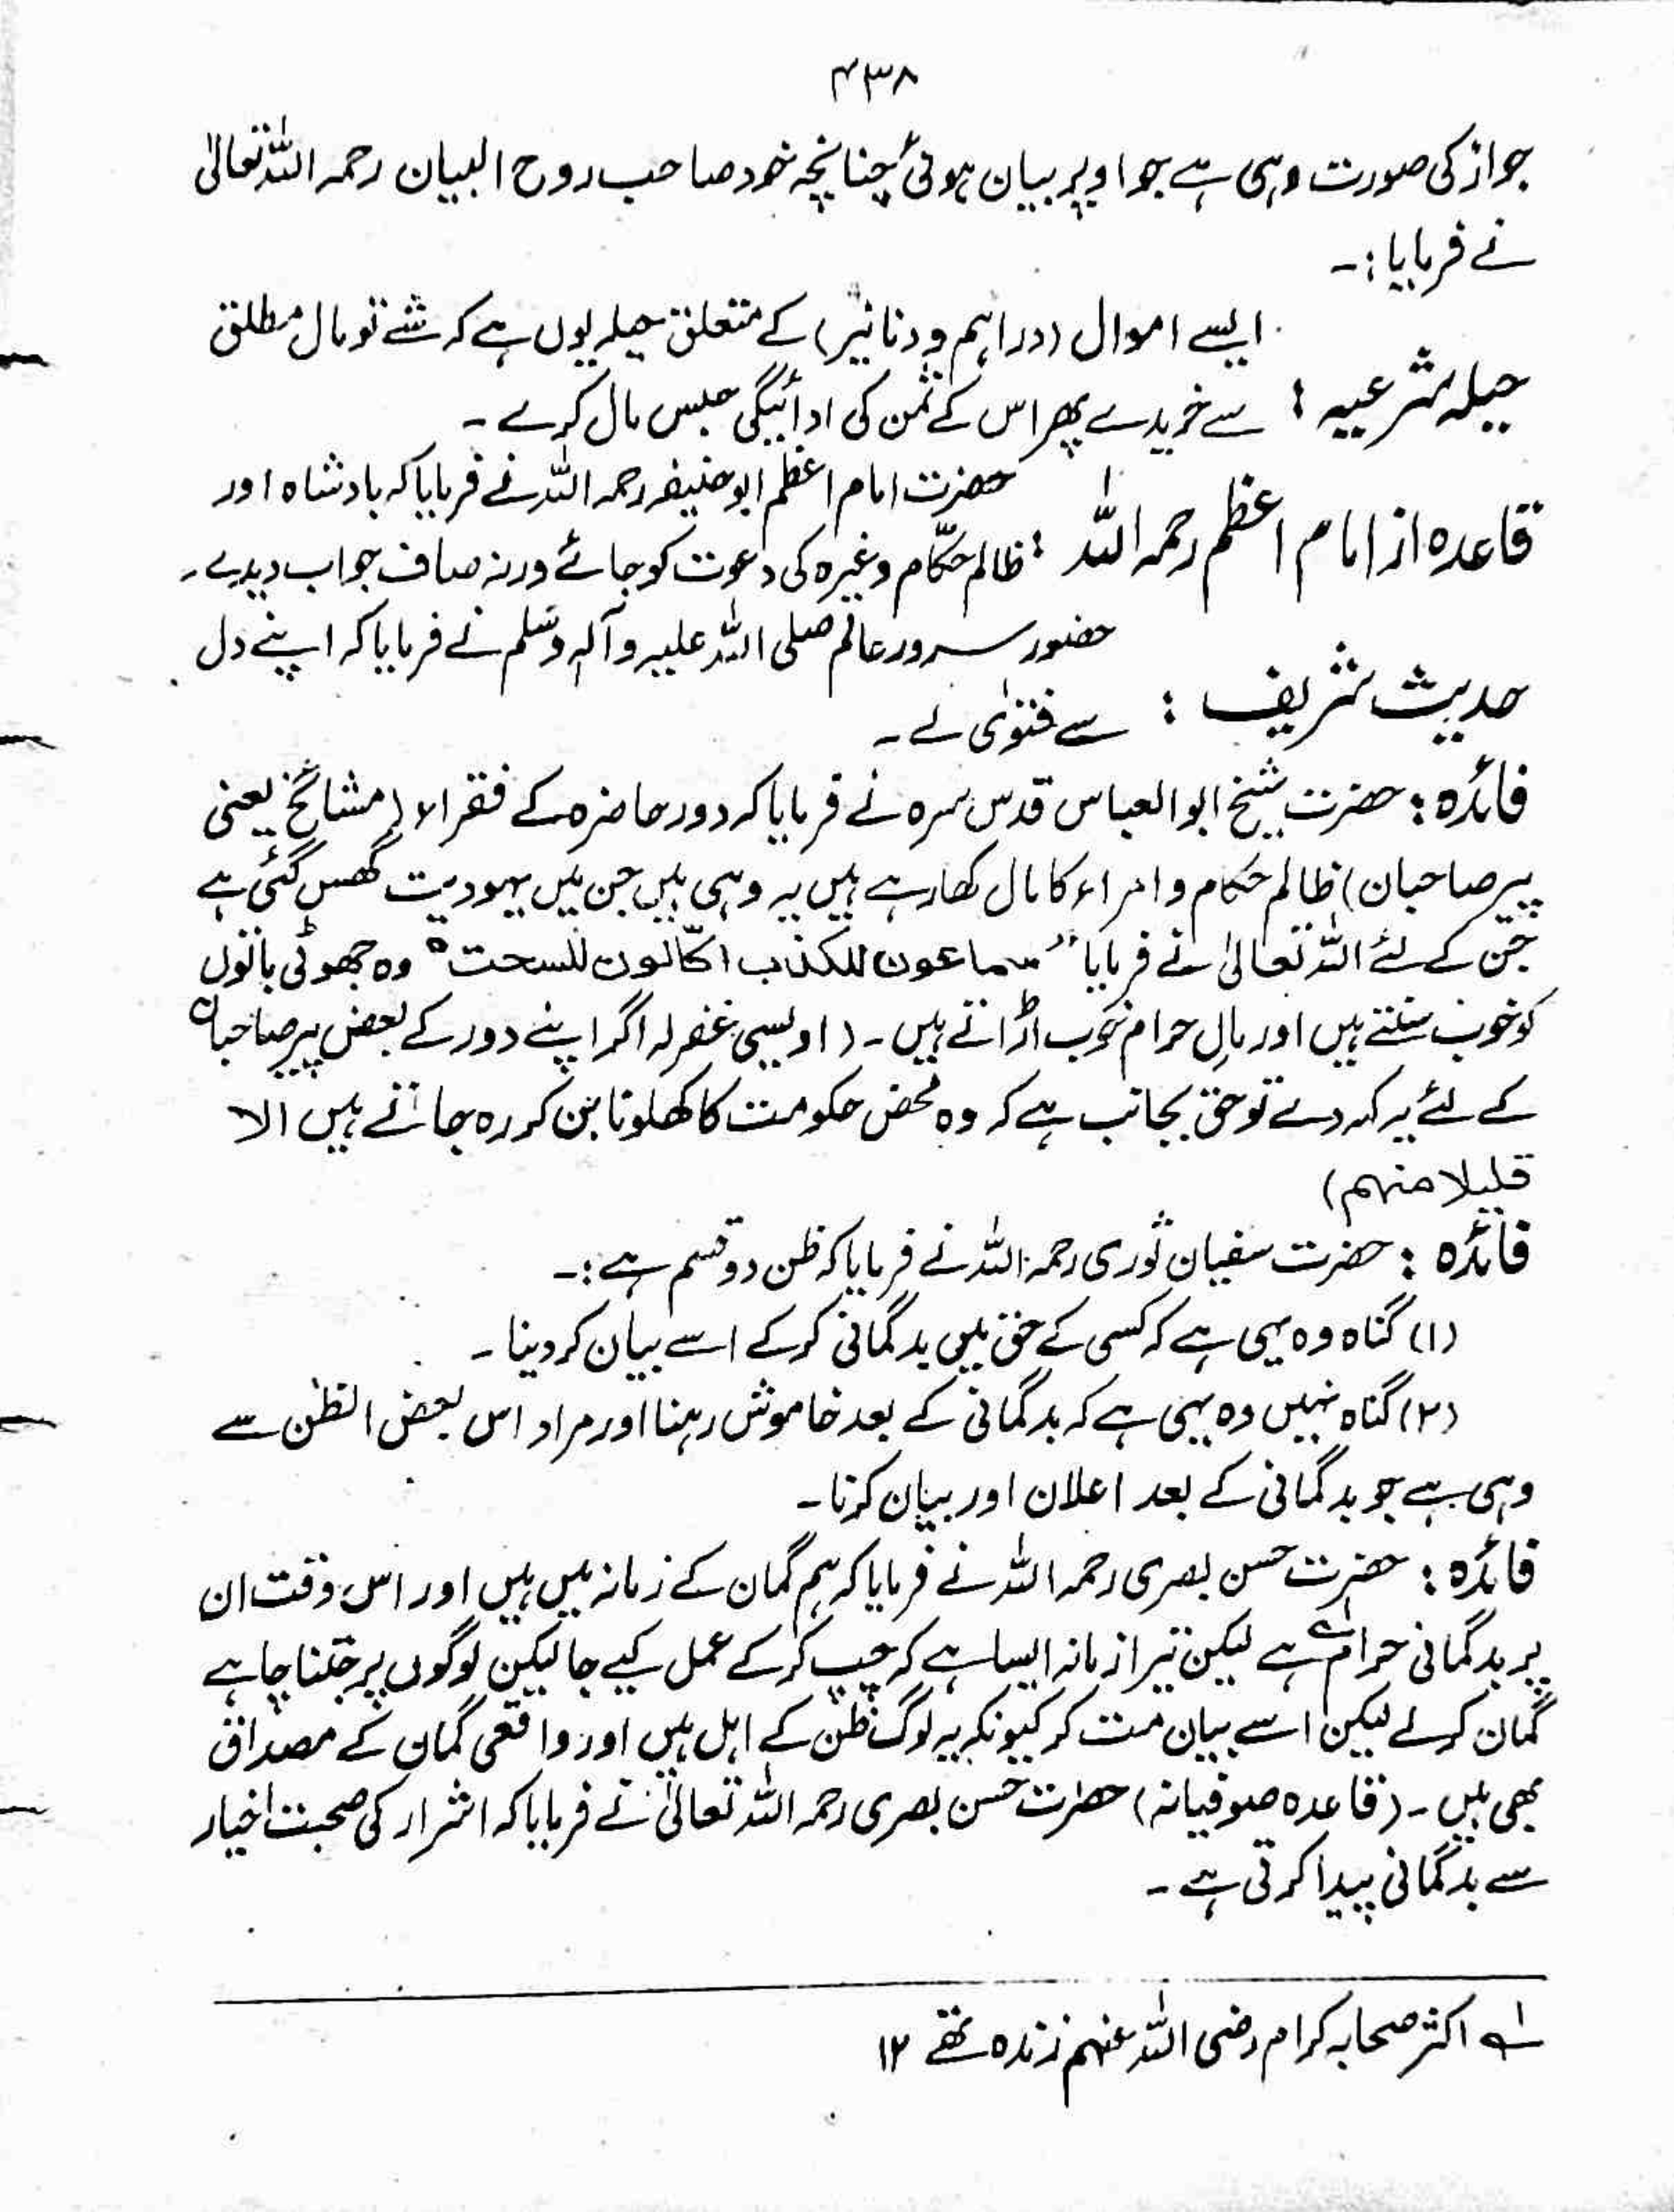 ۴۳۸
جواز کی صورت وہی ہے جو اوپر بیان ہوئی چنانچہ خود صاحب روح البیان رحمہ اللہ تعالیٰ
نے فرمایا :-
ایسے اموال (دراہم و دنانیر) کے متعلق حیلہ یوں ہے کہ شے تو مال مطلق
حیلہ شرعیہ : سے خریدے پھر اس کے ثمن کی ادائیگی جس مال کرے ۔
حضرت امام اعظم ابوحنیفہ رحمہ اللہ نے فرمایا کہ بادشاہ اور
قاعدہ از امام اعظم رحمہ اللہ : ظالم حکّام وغیرہ کی دعوت کو جائے ورنہ صاف جواب دیدے ۔
حضور سرور عالم صلی اللہ علیہ وآلہ وسلم نے فرمایا کہ اپنے دل
حدیث شریف : سے فتویٰ لے ۔
فائدہ : حضرت شیخ ابوالعباس قدس سرہ نے فرمایا کہ دور حاضرہ کے فقرالا (مشائخ یعنی
پیر صاحبان) ظالم حکام و امراء کا مال کھا رہے ہیں یہ وہی ہیں جن میں یہودیت گھس گئی ہے
جن کے لئے اللہ تعالیٰ نے فرمایا ”سماعون للکذب اکّالون للسحت“ وہ جھوٹی باتوں
کو خوب سنتے ہیں اور مالِ حرام خوب اڑاتے ہیں ۔ (اویسی غفرلہ اگر اپنے دور کے بعض پیر صاحبان
کے لئے یہ کہہ دے تو حق بجانب ہے کہ وہ محض حکومت کا کھلونا بن کر رہ جاتے ہیں الا
قلیلا منہم)
فائدہ : حضرت سفیان ثوری رحمہ اللہ نے فرمایا کہ ظن دو قسم ہے :-
(۱) گناہ وہ یہی ہے کہ کسی کے حق میں بدگمانی کرکے اسے بیان کر دینا ۔
(۲) گناہ نہیں وہ یہی ہے کہ بدگمانی کے بعد خاموش رہنا اور مراد اس بعض الظن سے
وہی ہے جو بدگمانی کے بعد اعلان اور بیان کرنا ۔
فائدہ : حضرت حسن بصری رحمہ اللہ نے فرمایا کہ ہم گمان کے زمانہ میں ہیں اور اس وقت ان
پر بدگمانی حرام ؎۱ ہے لیکن تیرا زمانہ ایسا ہے کہ چپ کرکے عمل کیے جا لیکن لوگوں پر جتنا چاہے
گمان کرلے لیکن اسے بیان مت کر کیونکہ یہ لوگ ظن کے اہل ہیں اور واقعی گمان کے مصداق
بھی ہیں ۔ (قاعدہ صوفیانہ) حضرت حسن بصری رحمہ اللہ تعالیٰ نے فرمایا کہ اشرار کی صحبت اخیار
سے بدگمانی پیدا کرتی ہے ۔
؎۱ اکثر صحابہ کرام رضی اللہ عنہم زندہ تھے ۱۲